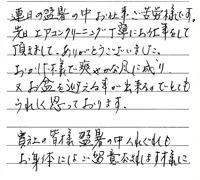 連日の猛暑の中お仕事ご苦労様です。
先日エアコンクリーニング丁寧にお仕事をして
頂きまして、ありがとうございました。
おかげ様で爽やかな風に成り
又お盆を迎える事が出来ありとても
うれしく思っております。
貴社の皆様猛暑の中くれぐれも
お身体にはご留意下さいます様に